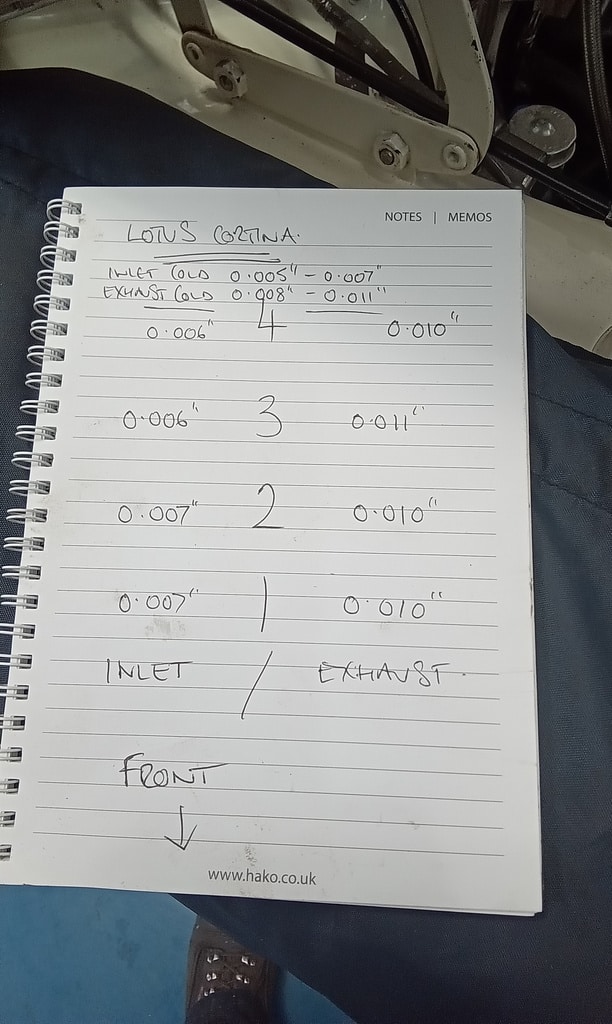 NOTES | MEMOS
LOTUS CORTINA.
INLET COLD 0.005" - 0.007"
EXHAUST COLD 0.008" - 0.011"
0.006" 4 0.010"
0.006" 3 0.011"
0.007" 2 0.010"
0.007" 1 0.010"
INLET / EXHAUST.
FRONT
↓
www.hako.co.uk